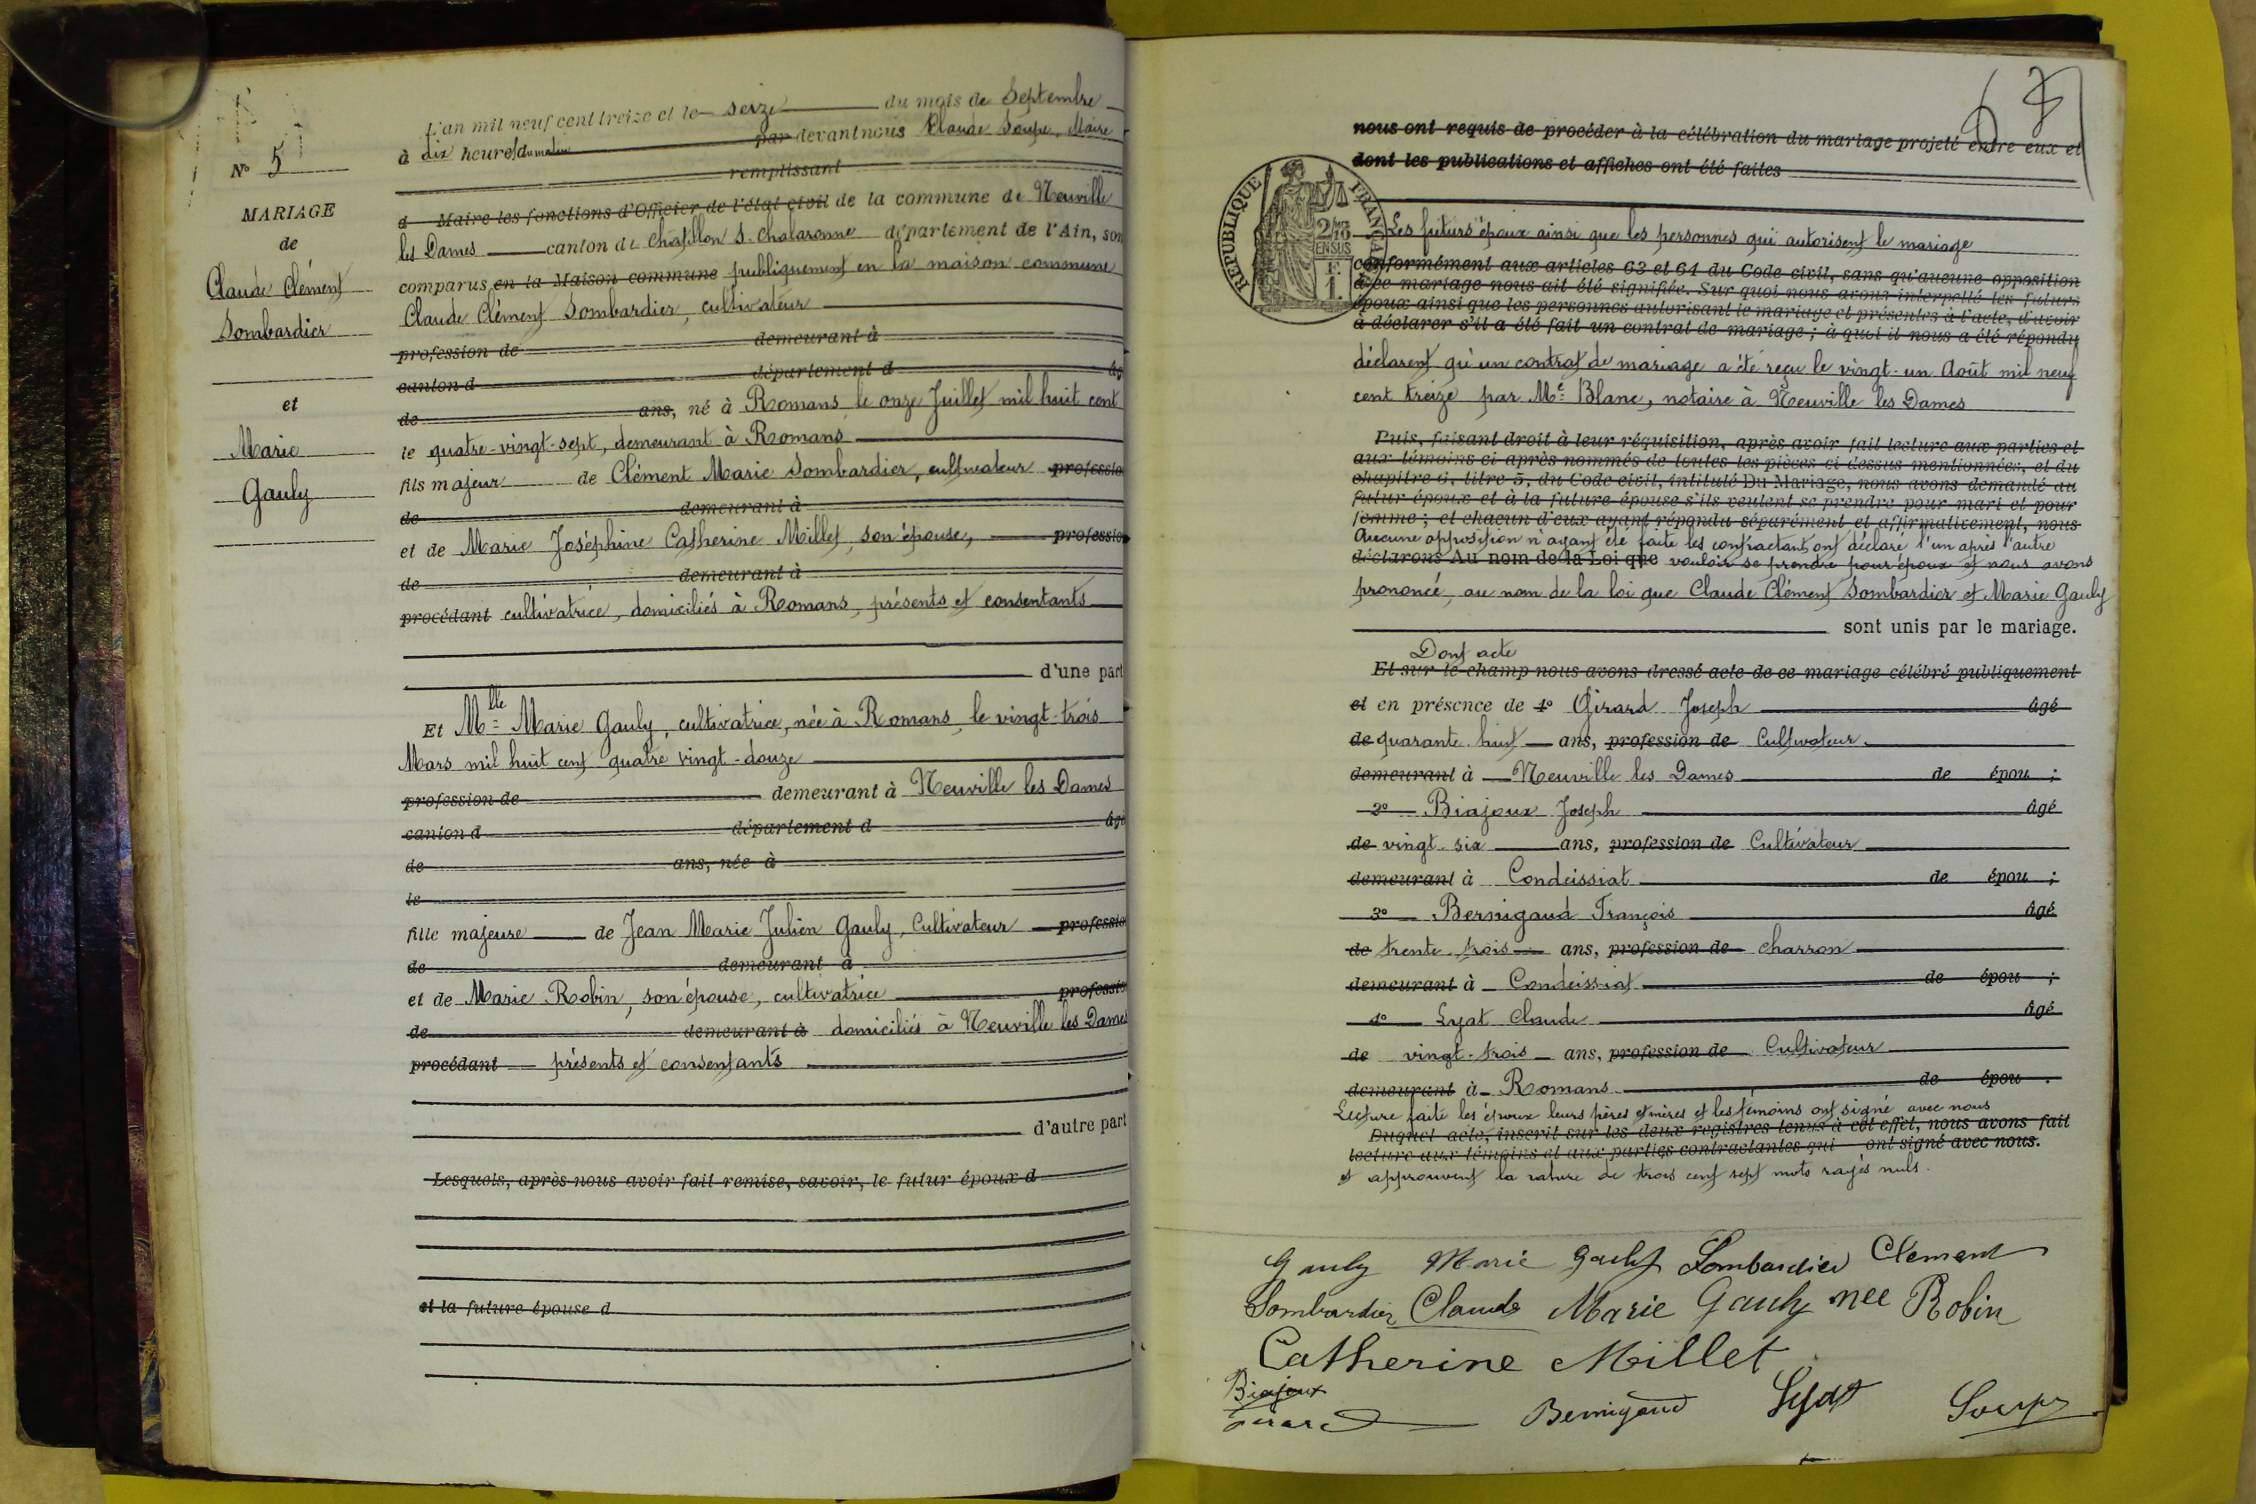 N° 5
MARIAGE
de
Claude Clément
Sombardier
et
Marie
Gauly
L'an mil neuf cent treize et le seize du mois de Septembre
à dix heures du matin par devant nous Claude Soupe, Maire
remplissant
d Maire les fonctions d'Officier de l'état civil de la commune de Neuville
les Dames canton de Châtillon S. Chalaronne département de l'Ain, son
comparus en la Maison commune publiquement en la maison commune
Claude Clément Sombardier, cultivateur
profession de demeurant à
canton d département d âg
de ans, né à Romans le onze Juillet mil huit cent
le quatre-vingt-sept, demeurant à Romans
fils majeur de Clément Marie Sombardier, cultivateur professio
de demeurant à
et de Marie Joséphine Catherine Millet, son épouse, professio
de demeurant à
procédant cultivatrice, domiciliés à Romans, présents et consentants
d'une part
Et Mlle Marie Gauly, cultivatrice, née à Romans, le vingt-trois
Mars mil huit cent quatre vingt-douze
profession de demeurant à Neuville les Dames
canton d département d âgé
de ans, née à
le
fille majeure de Jean Marie Julien Gauly, Cultivateur professio
de demeurant à
et de Marie Robin, son épouse, cultivatrice professio
de demeurant à domiciliés à Neuville les Dames
procédant présents et consentants
d'autre part
Lesquels, après nous avoir fait remise, savoir, le futur époux d
et la future épouse d
nous ont requis de procéder à la célébration du mariage projeté entre eux et
dont les publications et affiches ont été faites
REPUBLIQUE FRANÇAISE
2/10 EN SUS
F. 1.
Les futurs époux ainsi que les personnes qui autorisent le mariage
conformément aux articles 63 et 64 du Code civil, sans qu'aucune opposition
à ce mariage nous ait été signifiée. Sur quoi nous avons interpellé les futurs
époux ainsi que les personnes autorisant le mariage et présentes à l'acte, d'avoir
à déclarer s'il a été fait un contrat de mariage ; à quoi il nous a été répondu
déclarent qu'un contrat de mariage a été reçu le vingt-un Août mil neuf
cent treize par Me Blanc, notaire à Neuville les Dames
Puis, faisant droit à leur réquisition, après avoir fait lecture aux parties et
aux témoins ci après nommés de toutes les pièces ci dessus mentionnées, et du
chapitre 6, titre 5, du Code civil, intitulé Du Mariage, nous avons demandé au
futur époux et à la future épouse s'ils veulent se prendre pour mari et pour
femme ; et chacun d'eux ayant répondu séparément et affirmativement, nous
Aucune opposition n'ayant été faite les contractants ont déclaré l'un après l'autre
déclarons Au nom de la Loi que vouloir se prendre pour époux et nous avons
prononcé, au nom de la loi que Claude Clément Sombardier et Marie Gauly
sont unis par le mariage.
Dont acte
Et sur le champ nous avons dressé acte de ce mariage célébré publiquement
et en présence de 1° Girard Joseph âgé
de quarante huit ans, profession de Cultivateur
demeurant à Neuville les Dames de épou ;
2° Biajoux Joseph âgé
de vingt six ans, profession de Cultivateur
demeurant à Condeissiat de épou ;
3° Bernigaud François âgé
de trente trois ans, profession de charron
demeurant à Condeissiat de épou ;
4° Lyat Claude âgé
de vingt-trois ans, profession de Cultivateur
demeurant à Romans de épou .
Lecture faite les époux leurs pères et mères et les témoins ont signé avec nous
Duquel acte, inscrit sur les deux registres tenus à cet effet, nous avons fait
lecture aux témoins et aux parties contractantes qui ont signé avec nous.
et approuvent la rature de trois cent sept mots rayés nuls.
Gauly Marie Gauly Sombardier Clément
Sombardier Claude Marie Gauly née Robin
Catherine Millet
Biajoux
Girard Bernigaud Lyat Soupe